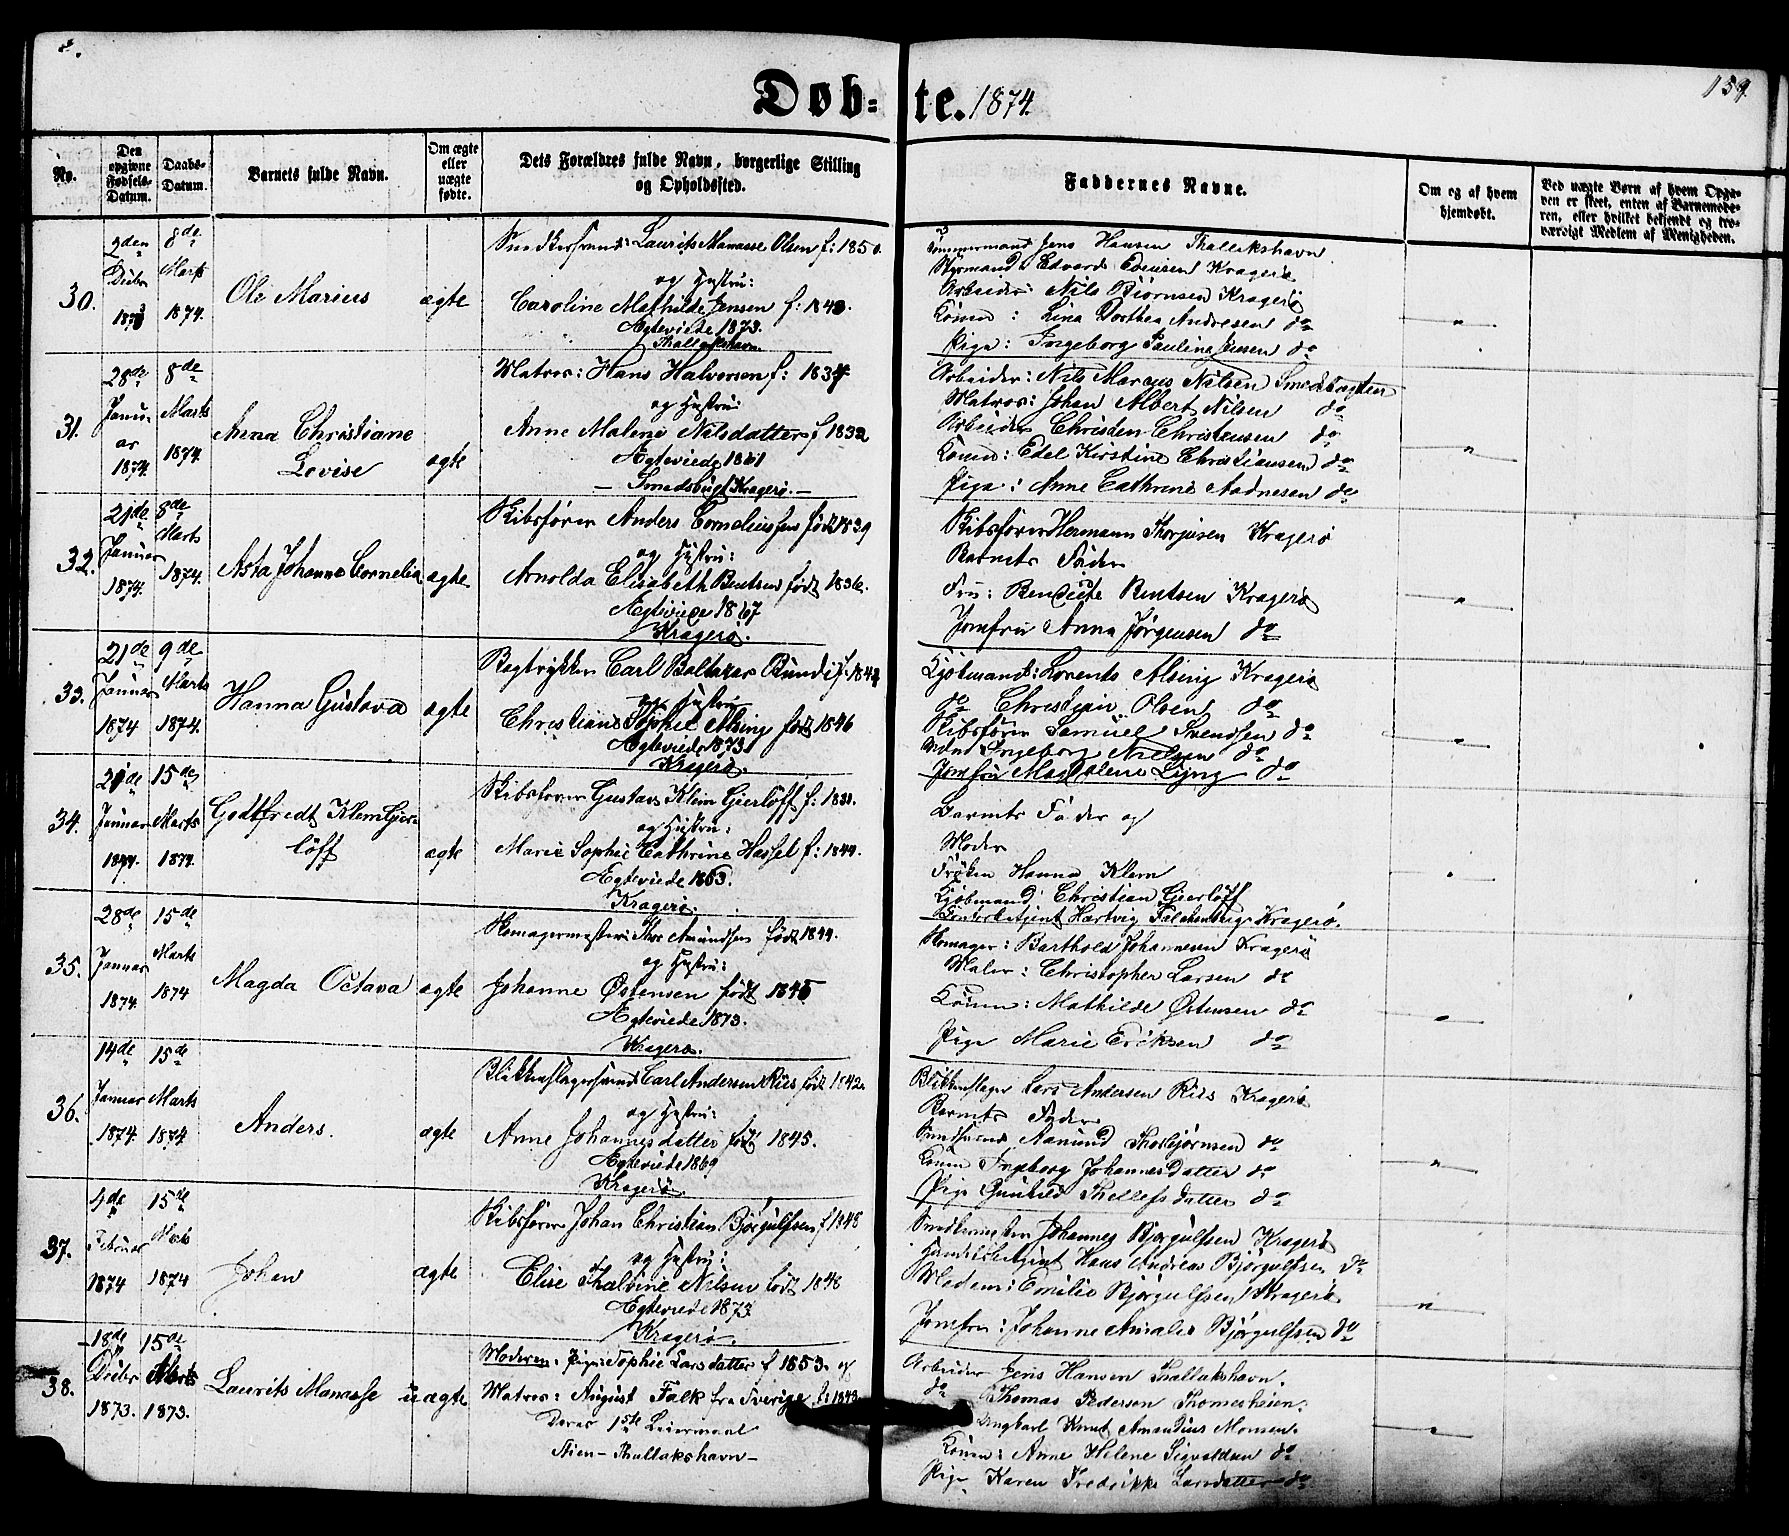 Døb-te. 1874.
159
No.
Den opgivne Fødsels-Datum.
Daabs-Datum.
Barnets fulde Navn.
Om ægte eller uægte fødte.
Dets Forældres fulde Navn, borgerlige Stilling og Opholdssted.
Faddernes Navne.
Om og af hvem hjemdøbt.
Ved uægte Børn af hvem Opgaven er skeet, enten af Barnemoderen, eller hvilket bekjendt og troværdigt Medlem af Menigheden.
30.
2den Decbr 1873
8de Marts 1874.
Ole Marius
ægte
Laurits Manasse Olsen f: 1850.
og Hustru:
Caroline Mathilde Jensen f: 1840.
Ægteviede 1873.
Thallakshavn.
Tømmermand Jens Hansen Thallakshavn
Styrmand Edvard Kragerø
Arbeider: Nils Bjørnsen Kragerø
Konen: Lina Dorthea Andresen do
Pige: Ingeborg Pauline Jensen do
31.
28de Januar 1874.
8de Marts 1874.
Anna Christiane Lovise
ægte
Matros: Hans Halvorsen f: 1834
og Hustru:
Anne Malene Nilsdatter f 1832
Ægteviede 1861
– Smedsbugt Kragerø. –
Arbeider: Nils Marcus Nilsen Smedsbugten
Matros: Johan Albert Nilsen do
Arbeider Christen Christensen do
Konen: Edel Kirstine Christiansen do
Pige: Anne Cathrine Aadnesen do
32.
21de Januar 1874.
8de Marts 1874.
Asta Johanne Cornelia
ægte
Skibsfører Anders Corneliussen født 1839
og Hustru:
Arnolda Elisabeth Bentsen født 1836.
Ægteviede 1867
Kragerø.
Skibsfører Hermann Thorjusen Kragerø
Barnets Fader
Fru: Bendicte Bentsen Kragerø
Jomfru Anna Jørgensen do
33.
21de Januar 1874
9de Marts 1874.
Hanna Gustava
ægte
Bogtrykker Carl Baltazar Bundi f. 1844
og Hustru
Christiane Sophie Alsing født 1846
Ægteviede 1873.
Kragerø.
Kjøbmand: Lorents Alsing Kragerø
do Christian Olsen do
Skibsfører Samuel Svendsen do
Ingeborg Nielsen do
Jomfru Magdalene Lyng do
34.
21de Januar 1874.
15de Marts 1874.
Godtfredt Klem Gjerløff
ægte
Skibsfører Gustav Klem Gierløff f: 1831.
og Hustru:
Marie Sophie Cathrine Hassel f: 1844.
Ægteviede 1863.
Kragerø.
Barnets Fader og
Moder
Frøken Hanna Klem
Kjøbmand Christian Gierløff
Hartvig Falckenberg Kragerø.
35.
28de Januar 1874.
15de Marts 1874
Magda Octava
ægte
Skomagermester: Thor Amundsen født 1844.
og Hustru:
Johanne Østensen født 1845
Ægteviede 1873.
Kragerø.
Skomager: Barthold Johannesen Kragerø
Maler: Christopher Larsen do
Konen: Mathilde Østensen do
Pige Marie Eriksen do
36.
14de Januar 1874.
15de Marts 1874
Anders.
ægte
Blikkenslagersvend Carl Andersen Riis født 1842.
og Hustru:
Anne Johannesdatter født 1845.
Ægteviede 1869
Kragerø
Blikkenslager Lars Andersen Riis Kragerø
Barnets Fader
Aanund Thorbjørnsen do
Konen Ingeborg Johannesdatter do
Pige Gunhild Thellefsdatter do
37.
4de Februar 1874
15de Marts 1874
Johan
ægte
Skibsfører Johan Christian Bjørgulfsen f 1848
og Hustru:
Elise Thalvine Nilsen født 1848
Ægteviede 1873
Kragerø.
Smedemester Johannes Bjørgulfsen Kragerø
Handelsbetjent Hans Andreas Bjørgulfsen do
Madam: Emilie Bjørgulfsen Kragerø
Jomfru: Johanne Amalie Bjørgulfsen do
38.
18de Decbr 1873.
15de Marts 1873.
Laurits Manasse
uægte
Moderen: Pige: Sophie Larsdatter f 1853. og
Matros: August Falk fra Sverige f: 1843
Deres 1ste Leiermaal
Stien – Thallakshavn –
Arbeider Jens Hansen Thallakshavn.
do Thomas Pedersen Thomesheien.
Ungkarl Knut Amandius Monsen.
Konen: Anne Helene Sigvaldsen do
Pige Karen Fredrikke Larsdatter do